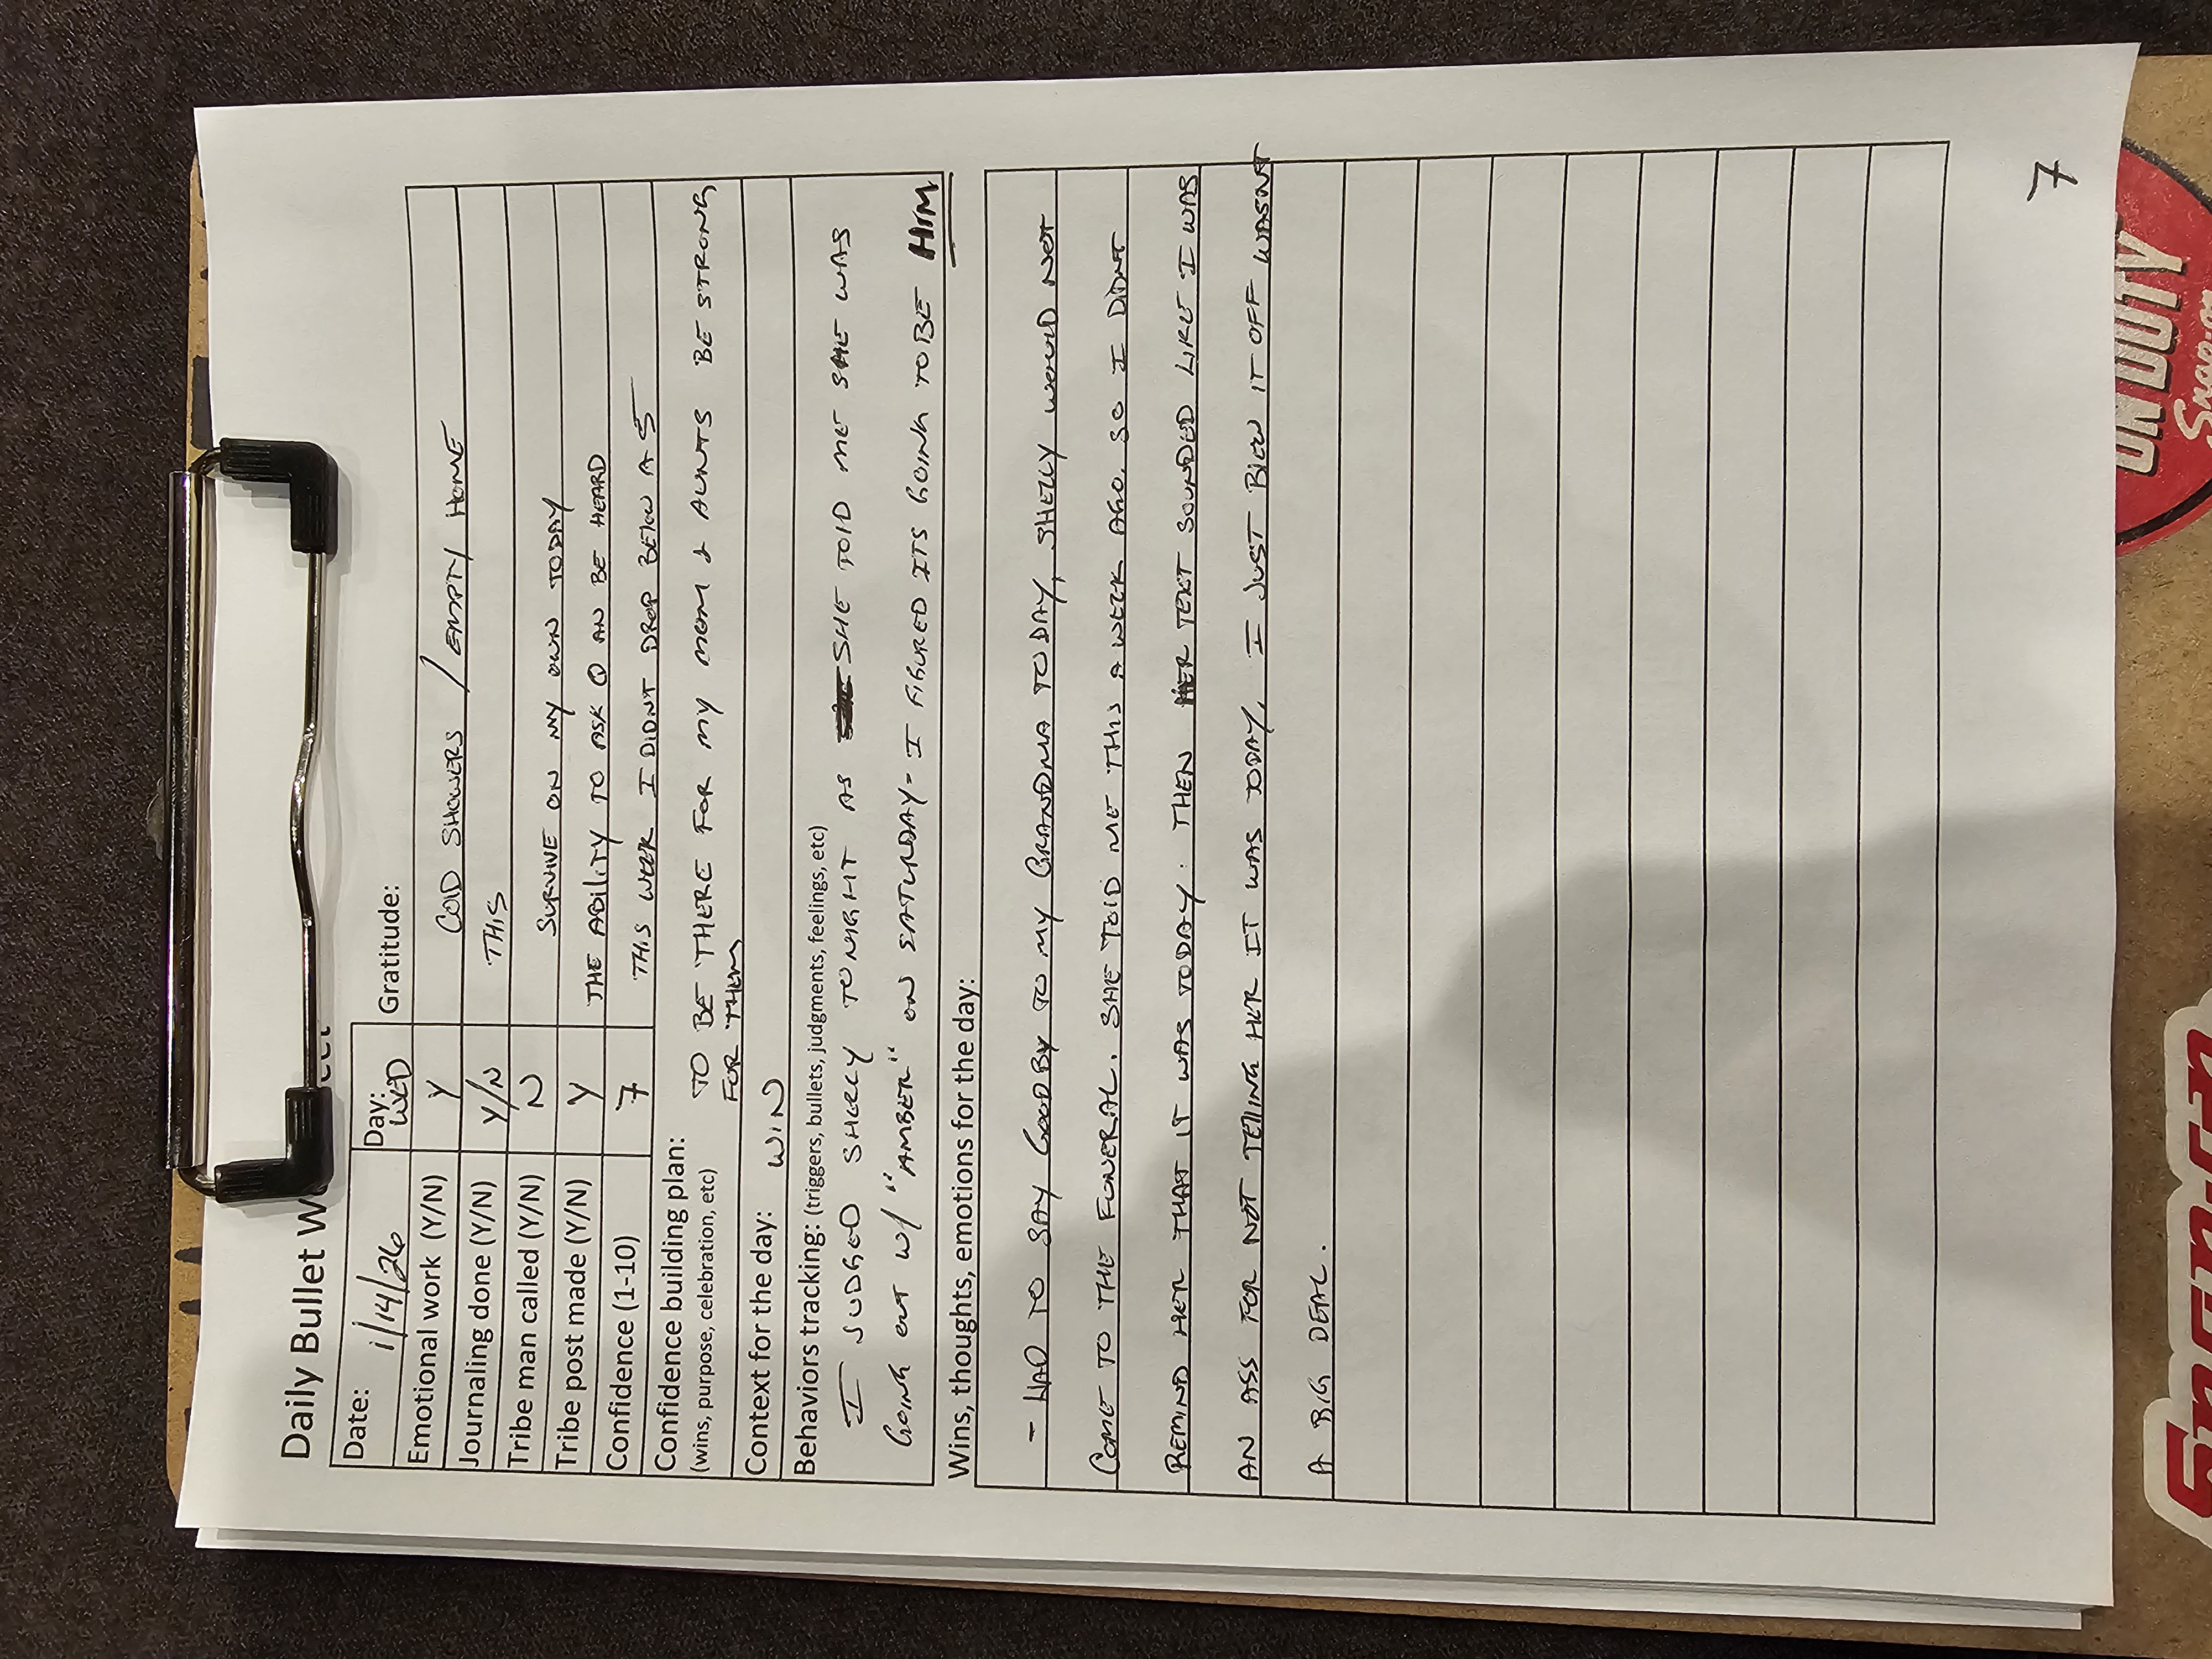 Daily Bullet W
Date: 1/14/26 Day: WED Gratitude:
Emotional work (Y/N) Y COLD SHOWERS / EMPTY HOME
Journaling done (Y/N) Y/N THIS
Tribe man called (Y/N) N SURVIVE ON MY OWN TODAY
Tribe post made (Y/N) Y THE ABILITY TO ASK AN BE HEARD
Confidence (1-10) 7 THIS WEEK I DIDNT DROP BELOW A 5
Confidence building plan: TO BE THERE FOR MY MOM & AUNTS BE STRONG
(wins, purpose, celebration, etc) FOR THEM
Context for the day: WIN
Behaviors tracking: (triggers, bullets, judgments, feelings, etc)
I JUDGED SHELLY TONIGHT AS SHE TOLD ME SHE WAS
GOING OUT W/ "AMBER" ON SATURDAY - I FIGURED ITS GOING TO BE HIM
Wins, thoughts, emotions for the day:
- HAD TO SAY GOODBY TO MY GRANDMA TODAY, SHELLY WOULD NOT
COME TO THE FUNERAL. SHE TOLD ME THIS A WEEK AGO. SO I DIDNT
REMIND HER THAT IT WAS TODAY. THEN HER TEXT SOUNDED LIKE I WAS
AN ASS FOR NOT TELLING HER IT WAS TODAY, I JUST BLEW IT OFF WASNT
A BIG DEAL.
7
ON DUTY
Snap-on
Snap-on